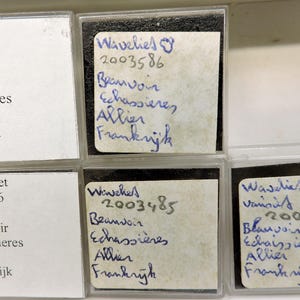 es
Wavelliet
2003586
Beauvoir
Echassieres
Allier
Frankrijk
et
6
ir
eres
ijk
Wavelliet
2003485
Beauvoir
Echassières
Allier
Frankrijk
200
Beauvoir
Allier